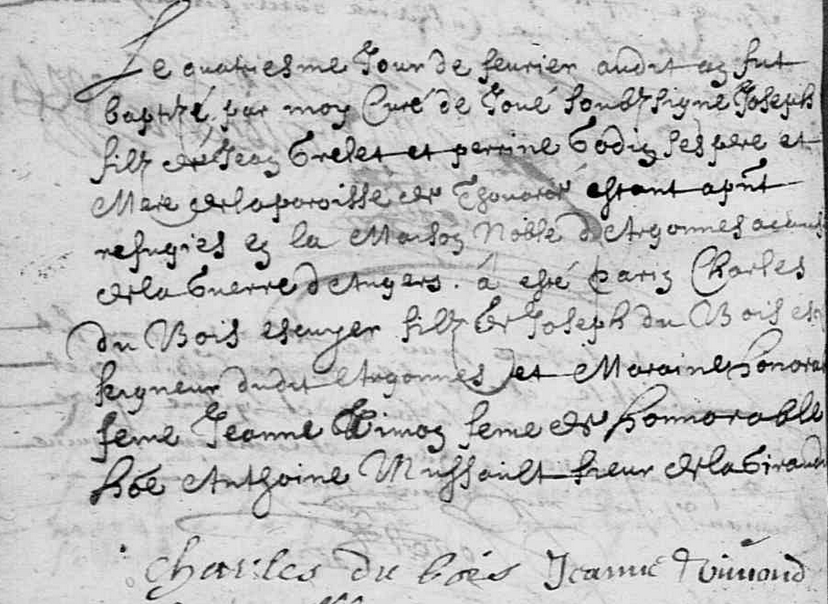 Le quatriesme Jour de febvrier audit an fut
baptizé par moy Curé de Joué soubz signé Joseph
filz de Jean Grelet et perrine Godin ses pere et
Mere de la paroisse de Thouarcé estant apnt
refugies en la Maison Noble d'Argonnes a cause
de la Guerre d'Angers. á esté Parin Charles
du Bois escuyer filz de Joseph du Bois
seigneur dudit Argonnes et Maraine honora
feme Jeanne femme de honnorable
hoe Anthoine Mussault sieur de la Giraud
Charles du bois Jeanne